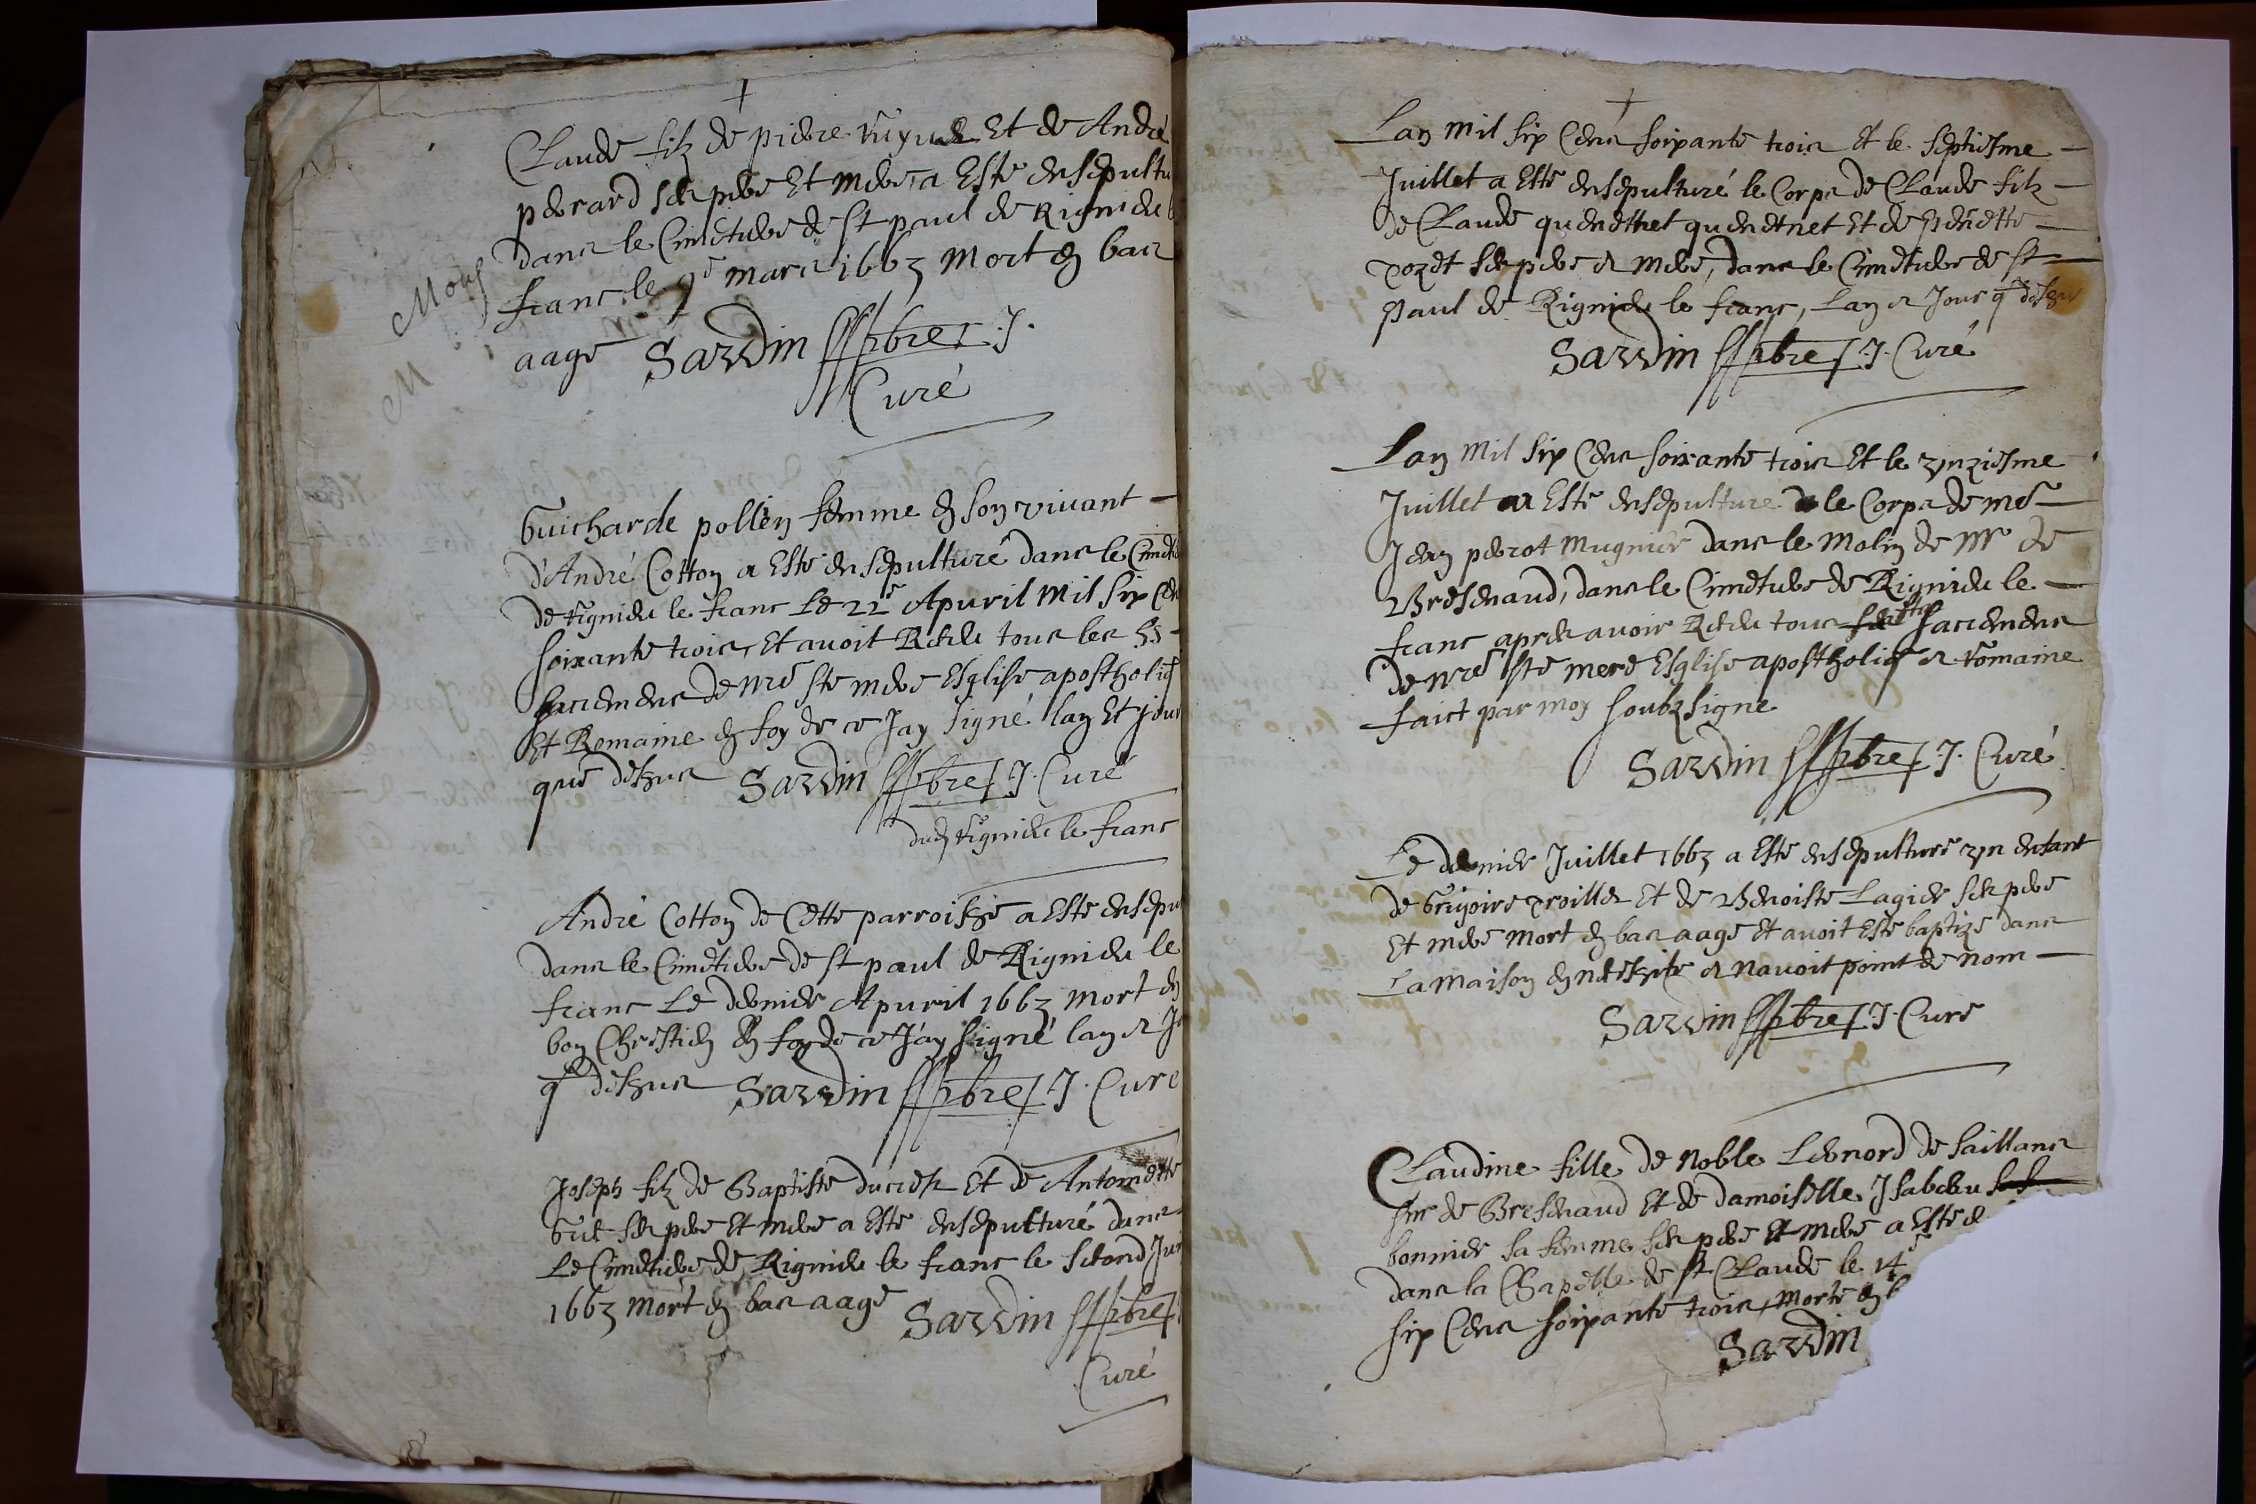 Claude filz de pierre et de André
perard ses pere et mere, a esté ensepultu
dans le Cimetiere de st paul de Rignieu
franc, le 9e mars 1663 mort en bas
aage Sardin pbre J.
Curé
Guicharde pollen femme en son vivant
d'André Cotton a esté ensepulturé dans le Cimeti
de rignieu le franc Le 22e Apuril mil six Cen
soixante trois, et avoit Receu tous les ss
sacremens de nre ste mere Esglise apostholiq
et Romaine en foy de ce Jay signé lan et jour
que dessus Sardin pbre J. Curé
dud rignieu le franc
André Cotton de Cette parroisse a esté ensepu
dans le Cimetiere de st paul de Rignieu le
franc Le dernier Apuril 1663 mort en
bon Chrestien En foy de ce J'ay signé lan et Jo
q dessus Sardin pbre J. Curé
Joseph filz de Baptiste ducret et de Antoinette
ses pere et mere a esté ensepulturé dans
Le Cimetiere de Rignieu le franc le second Jui
1663 mort en bas aage Sardin pbre
Curé
Lan mil six Cens soixante trois et le septiesme
Juillet a esté ensepulturé le Corps de Claude filz
de Claude quenethet quenetnet et de penette
ses pere et mere, dans le Cimetiere de st
paul de Rignieu le franc, Lan et Jour q dessus
Sardin pbre J. Curé
Lan mil six Cens soixante trois et le unziesme
Juillet a esté ensepulturé le Corps de me
Jean perrot mugnier dans le molin de mr de
Bresenaud, dans le Cimetiere de Rignieu le
franc apres avoir Receu tous ses stz sacremens
de nre ste mere Esglise apostholiq et romaine
faict par moy soubzsigne
Sardin pbre J. Curé
Le dernier Juillet 1663 a esté ensepulturé un enfant
de Grigoire troillet et de Benoiste Lagier ses pere
et mere mort en bas aage et avoit esté baptizé dans
La maison en necessité et navoit point de nom
Sardin pbre J. Curé
Claudine fille de noble Leonord de saillans
sr de Bresenaud et de damoiselle Isabeau
bonnier sa femme ses pere et mere a esté
dans la Chapelle de st Claude le 14e
six Cens soixante trois, morte en b
Sardin